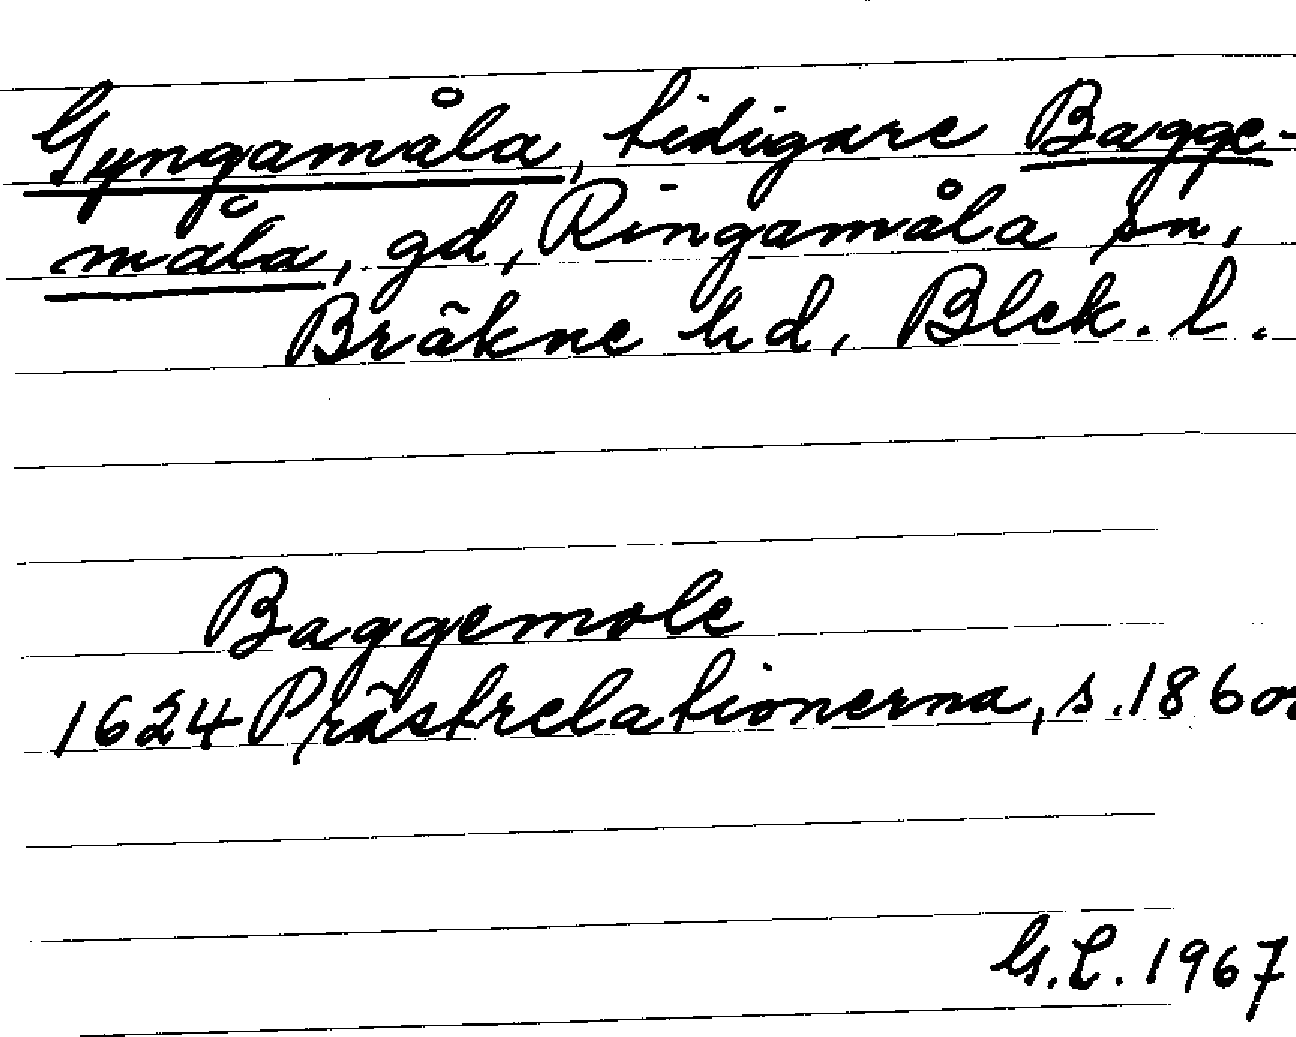 Gyngamåla, tidigare Bagge-
måla, gd, Ringamåla sn,
Bräkne hd, Blek. l.
Baggemole
1624 Prästrelationerna, s. 186
G.L. 1967